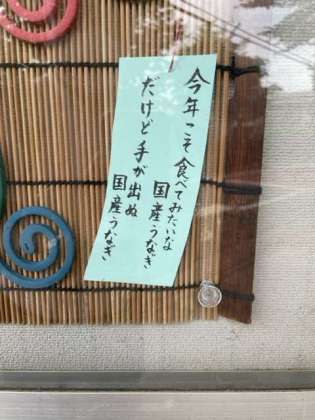 今年こそ食べてみたいな
国産うなぎ
だけど手が出ぬ
国産うなぎ